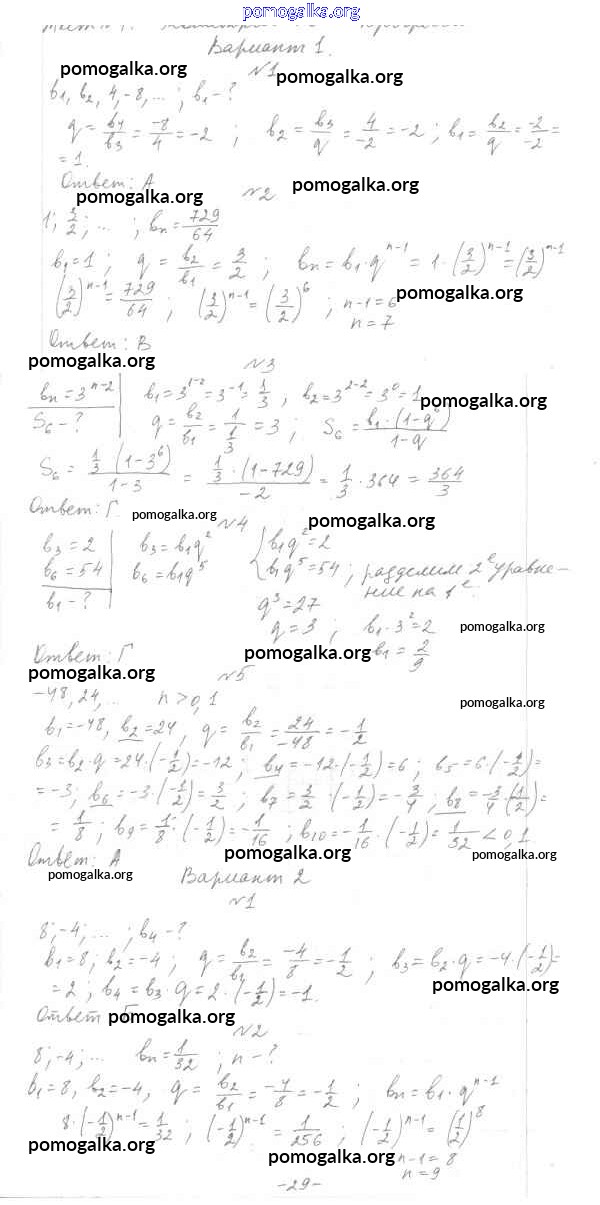 pomogalka.org
Вариант 1.
pomogalka.org
№1 pomogalka.org
b₁, b₂, 4, -8, ... ; b₁ - ?
q = b₄/b₃ = -8/4 = -2 ; b₂ = b₃/q = 4/-2 = -2 ; b₁ = b₂/q = -2/-2 =
= 1.
Ответ: А
pomogalka.org №2 pomogalka.org
1; 3/2; ... ; bₙ = 729/64
b₁ = 1 ; q = b₂/b₁ = 3/2 ; bₙ = b₁·qⁿ⁻¹ = 1·(3/2)ⁿ⁻¹ = (3/2)ⁿ⁻¹
(3/2)ⁿ⁻¹ = 729/64 ; (3/2)ⁿ⁻¹ = (3/2)⁶ ; n-1 = 6 pomogalka.org
n = 7
Ответ: В
pomogalka.org №3
bₙ = 3ⁿ⁻² b₁ = 3¹⁻² = 3⁻¹ = 1/3 , b₂ = 3²⁻² = 3⁰ = 1 pomogalka.org
S₆ - ? q = b₂/b₁ = 1/(1/3) = 3 ; S₆ = b₁·(1-q⁶)/(1-q)
S₆ = 1/3·(1-3⁶)/(1-3) = 1/3·(1-729)/(-2) = 1/3·364 = 364/3
Ответ: Г. pomogalka.org №4 pomogalka.org
b₃ = 2 b₃ = b₁q² { b₁q² = 2
b₆ = 54 b₆ = b₁q⁵ b₁q⁵ = 54 ; разделим 2ᵉ уравне-
b₁ - ? ние на 1ᵉ.
q³ = 27
q = 3 ; b₁·3² = 2 pomogalka.org
Ответ: Г pomogalka.org b₁ = 2/9
pomogalka.org №5
-48, 24, ... n > 0,1 pomogalka.org
b₁ = -48, b₂ = 24, q = b₂/b₁ = 24/-48 = -1/2
b₃ = b₂·q = 24·(-1/2) = -12 ; b₄ = -12·(-1/2) = 6 ; b₅ = 6·(-1/2) =
= -3; b₆ = -3·(-1/2) = 3/2 ; b₇ = 3/2·(-1/2) = -3/4 ; b₈ = -3/4·(1/2) =
= 1/8 ; b₉ = 1/8·(-1/2) = -1/16 ; b₁₀ = -1/16·(-1/2) = 1/32 < 0,1
Ответ: А pomogalka.org pomogalka.org
pomogalka.org Вариант 2
№1
8; -4; ... ; b₄ - ?
b₁ = 8 ; b₂ = -4 ; q = b₂/b₁ = -4/8 = -1/2 ; b₃ = b₂·q = -4·(-1/2) =
= 2 ; b₄ = b₃·q = 2·(-1/2) = -1. pomogalka.org
Ответ pomogalka.org
№2
8; -4; ... bₙ = 1/32 ; n - ?
b₁ = 8, b₂ = -4, q = b₂/b₁ = -4/8 = -1/2 ; bₙ = b₁·qⁿ⁻¹
8·(-1/2)ⁿ⁻¹ = 1/32 ; (-1/2)ⁿ⁻¹ = 1/256 ; (-1/2)ⁿ⁻¹ = (1/2)⁸
pomogalka.org pomogalka.org n-1 = 8
n = 9
-29-